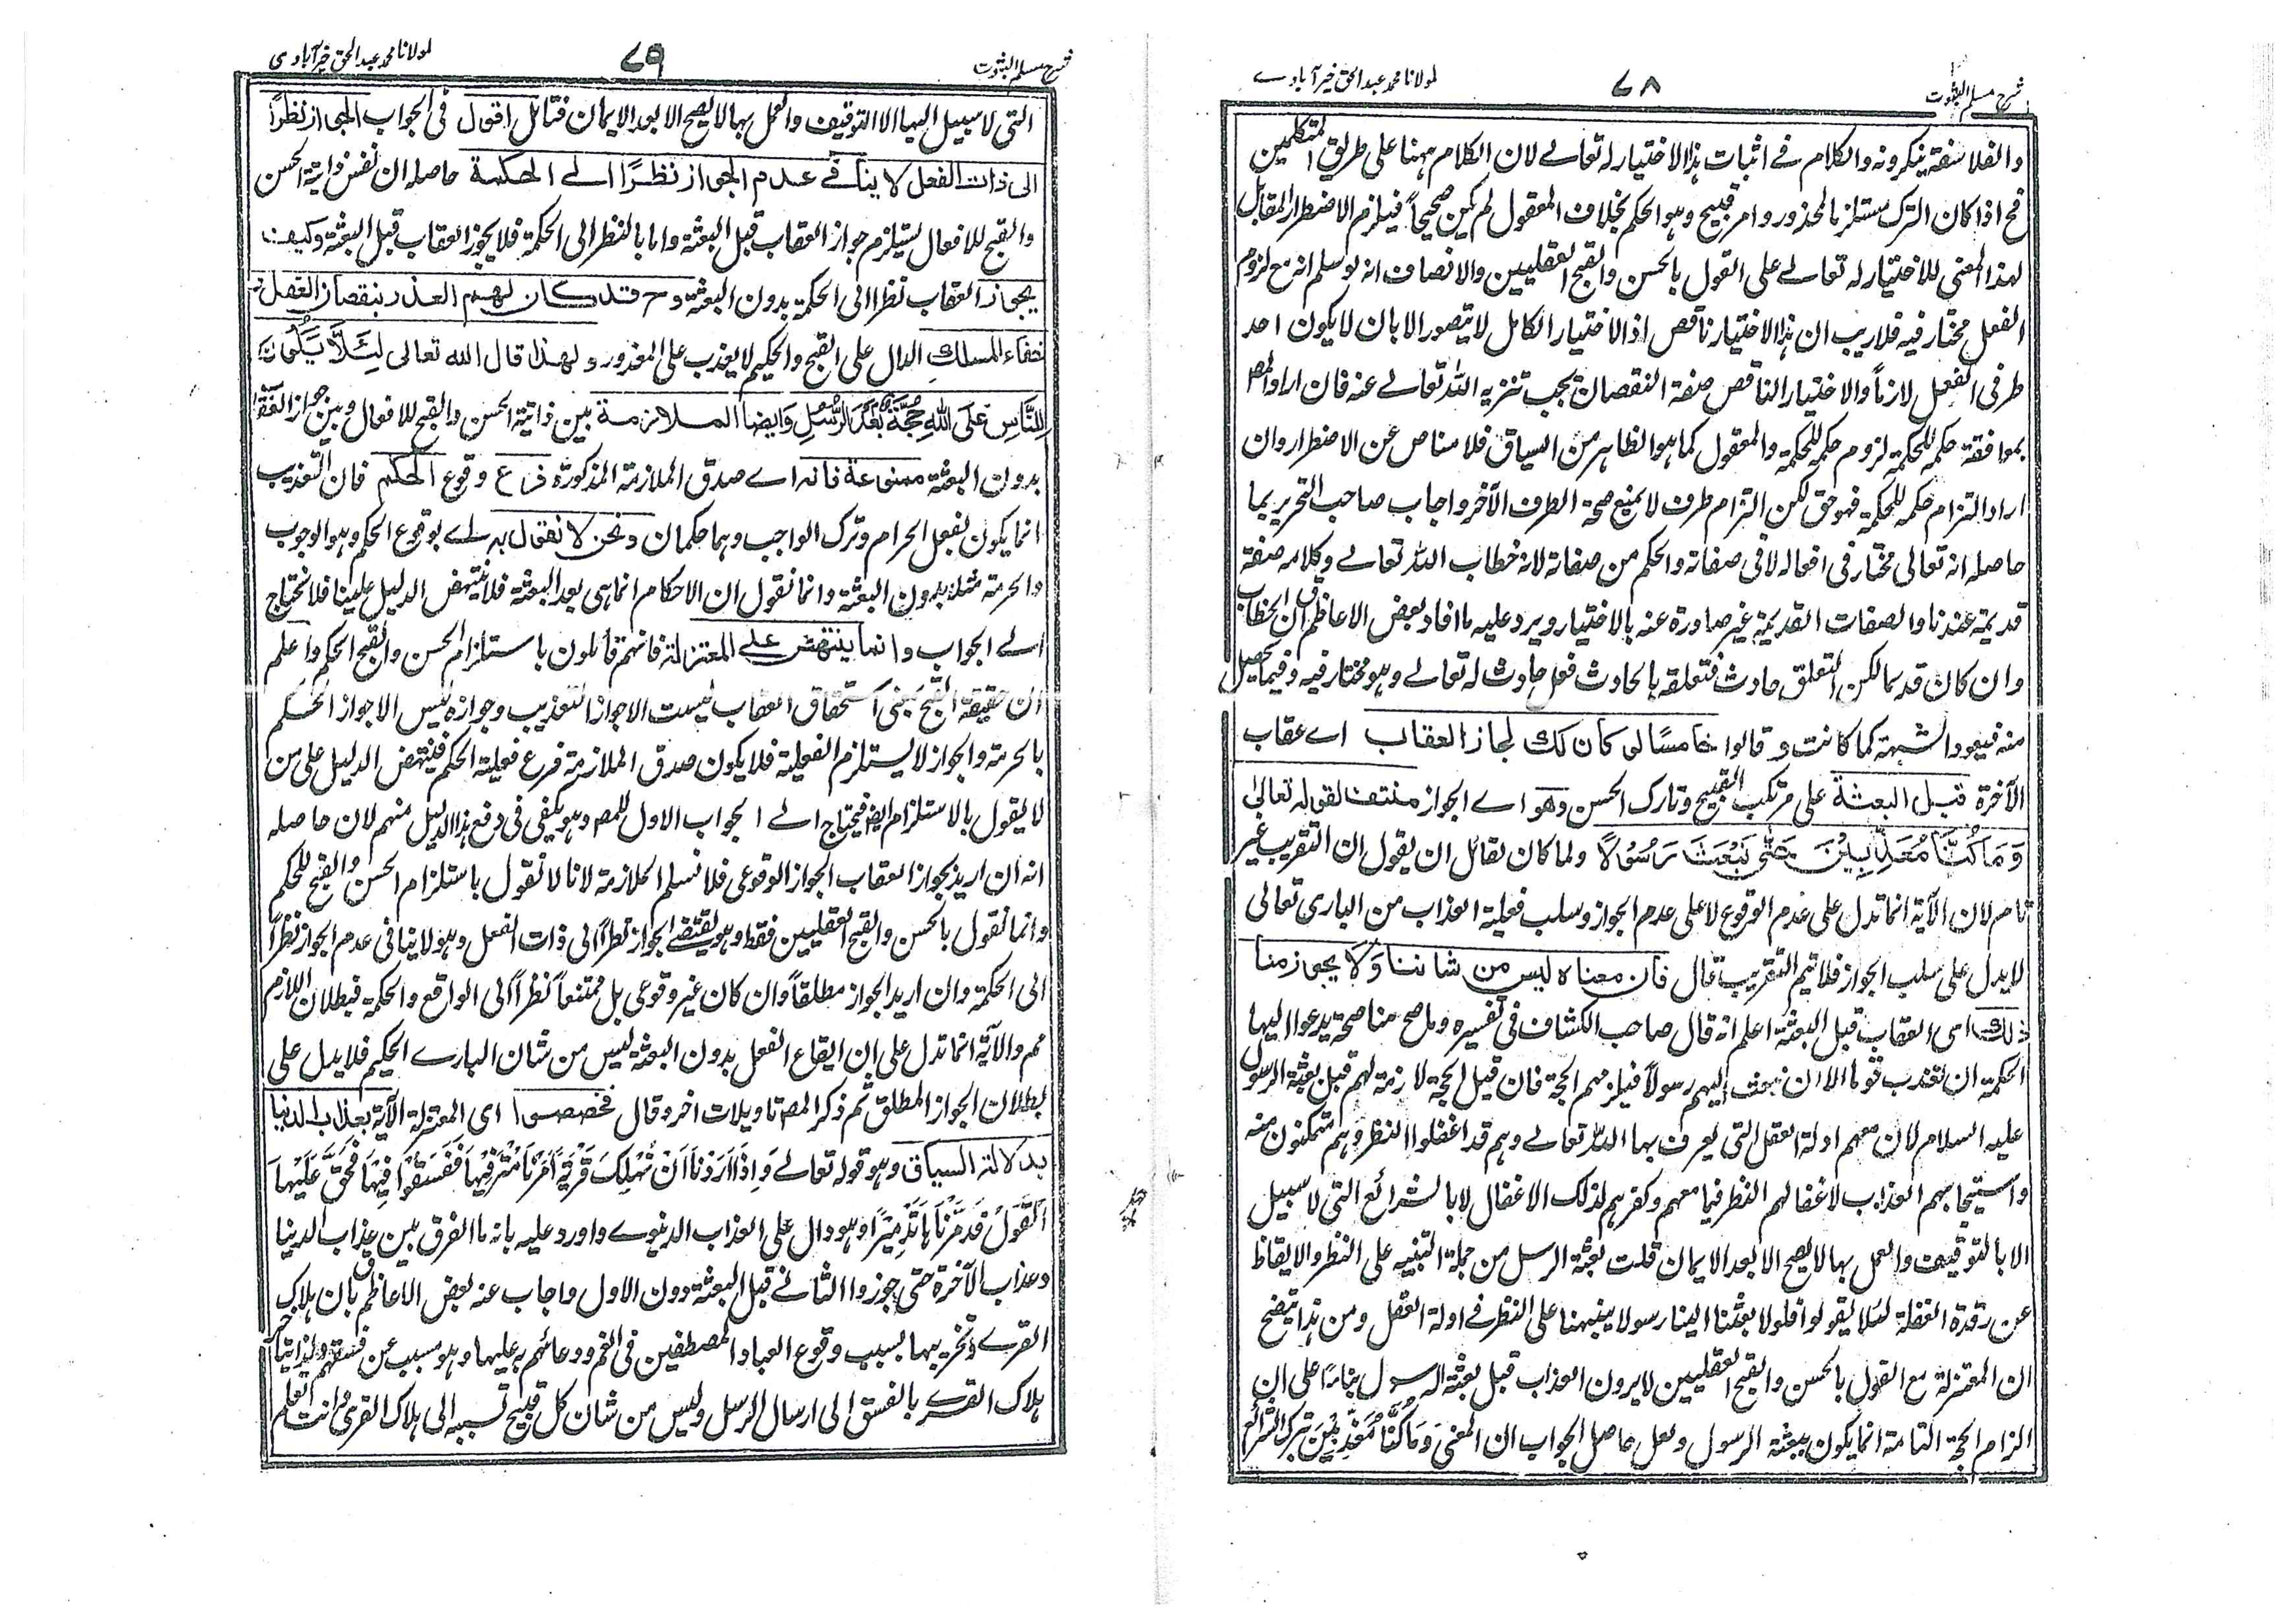 شرح مسلم الثبوت
٧٨
لمولانا محمد عبد الحق خیرآبادے
والفلاسفة ینکرونه والکلام فے اثبات هذا الاختیار له تعالے لان الکلام ههنا علی طریق المتکلمین
فح اذا کان الترک مستلزما لمحذور وامر قبیح وهو الحکم بخلاف المعقول لم یکن صحیحاً فیلزم الاضطرار المقابل
لهذا المعنی للاختیار له تعالے علی القول بالحسن والقبح العقلیین والانصاف انه لو سلم انه مع لزوم
الفعل مختار فیه فلا ریب ان هذا الاختیار ناقص اذ الاختیار الکامل لا یتصور الا بان لا یکون احد
طرفی الفعل لازماً والاختیار الناقص صفة النقصان یجب تنزیه الله تعالے عنه فان اراد المص
بموافقة حکمه للحکمة لزوم حکمه للحکمة والمعقول کما هو الظاهر من السیاق فلا مناص عن الاضطرار وان
اراد التزام حکمه للحکمة فهو حق لکن التزام طرف لا یمنع صحة الطرف الآخر واجاب صاحب التحریر بما
حاصله انه تعالی مختار فی افعاله لا فی صفاته والحکم من صفاته لانه خطاب الله تعالے وکلامه صفة
قدیمة عندنا والصفات القدیمة غیر صادرة عنه بالاختیار ویرد علیه ما افاد بعض الاعاظم ان الخطاب
وان کان قدیما لکن التعلق حادث فتعلقه بالحادث فعل حادث له تعالے وهو مختار فیه وفیما یحصل
منه فیعود الشبهة کما کانت و قالوا خامسًا لو کان کک لجاز العقاب اے عقاب
الآخرة قبل البعثة علی مرتکب القبیح وتارک الحسن وهو اے الجواز منتف لقوله تعالیٰ
وَمَا کُنَّا مُعَذِّبِیْنَ حَتّٰی نَبْعَثَ رَسُوْلًا ولما کان لقائل ان یقول ان التقریب غیر
تام لان الآیة انما تدل علی عدم الوقوع لا علی عدم الجواز وسلب فعلیة العذاب من الباری تعالی
لا یدل علی سلب الجواز فلا یتم التقریب قال فان معناه لیس من شاننا وَلَا یجوز منا
ذلك ای العقاب قبل البعثة اعلم انه قال صاحب الکشاف فی تفسیره وما صح منا صحة یدعوا الیها
الحکمة ان نعذب قوما الا ان نبعث الیهم رسولاً فیلزمهم الحجة فان قیل الحجة لازمة لهم قبل بعثة الرسول
علیه السلام لان معهم ادلة العقل التی یعرف بها الله تعالے وهم قد اغفلوا النظر وهم متمکنون منه
واستیجابهم العذاب لاغفالهم النظر فیما معهم وکفرهم لذلک الاغفال لا بالشرائع التی لا سبیل
الا بالتوقیف والعمل بها لا یصح الا بعد الایمان قلت بعثة الرسل من جملة التنبیه علی النظر والایقاظ
عن رقدة الغفلة لئلا یقولوا فلولا بعثت الینا رسولا ینبهنا علی النظر فے ادلة العقل ومن هذا یتضح
ان المعتزلة مع القول بالحسن والقبح العقلیین لا یرون العذاب قبل بعثة الرسول بناءً علی ان
الزام الحجة التامة انما یکون ببعثة الرسول ولعل حاصل الجواب ان المعنی وَمَا کُنَّا مُعَذِّبِیْنَ بترک الشرائع
شرح مسلم الثبوت
٧٩
لمولانا محمد عبد الحق خیرآبادی
التی لا سبیل الیها الا التوقیف والعمل بها لا یصح الا بعد الایمان فتامل اقول فی الجواب الجواز نظراً
الی ذات الفعل لا ینافے عدم الجواز نظرًا الے الحکمة حاصله ان نفس ذاتیة الحسن
والقبح للافعال یستلزم جواز العقاب قبل البعثة واما بالنظر الی الحکمة فلا یجوز العقاب قبل البعثة وکیف
یجوز العقاب نظرا الی الحکمة بدون البعثة وح قد کان لهم العذر بنقصان العقل و
خفاء المسلك الدال علی القبح والحکیم لا یعذب علی المعذور ولهذا قال الله تعالی لِئَلَّا یَکُوْنَ
لِلنَّاسِ عَلَی اللهِ حُجَّةٌ بَعْدَ الرُّسُلِ وایضا الملازمة بین ذاتیة الحسن والقبح للافعال وبین جواز العقاب
بدون البعثة ممنوعة فانه اے صدق الملازمة المذکورة فرع وقوع الحکم فان التعذیب
انما یکون بفعل الحرام وترک الواجب وهما حکمان ونحن لا نقول به اے بوقوع الحکم وهو الوجوب
والحرمة مثلا بدون البعثة وانما نقول ان الاحکام انما هی بعد البعثة فلا ینتهض الدلیل علینا فلا نحتاج
الے الجواب وانما ینتهض علے المعتزلة فانهم قائلون باستلزام الحسن والقبح الحکم واعلم
ان حقیقة القبح بمعنی استحقاق العقاب لیست الا جواز التعذیب وجوازه لیس الا جواز الحکم
بالحرمة والجواز لا یستلزم الفعلیة فلا یکون صدق الملازمة فرع فعلیة الحکم فینتهض الدلیل علی من
لا یقول بالاستلزام ایضا فیحتاج الے الجواب الاول للمص وهو یکفی فی دفع هذا الدلیل منهم لان حاصله
انه ان ارید بجواز العقاب الجواز الوقوعی فلا نسلم الملازمة لانا لا نقول باستلزام الحسن والقبح للحکم
وانما نقول بالحسن والقبح العقلیین فقط وهو یقتضے الجواز نظراً الی ذات الفعل وهو لا ینافی عدم الجواز نظراً
الی الحکمة وان ارید الجواز مطلقاً وان کان غیر وقوعی بل ممتنعاً نظراً الی الواقع والحکمة فبطلان اللازم
مم والآیة انما تدل علی ان ایقاع الفعل بدون البعثة لیس من شان البارے الحکیم فلا یدل علی
بطلان الجواز المطلق ثم ذکر المص تاویلات اخر وقال فخصصوا ای المعتزلة الآیة بعذاب الدنیا
بدلالة السیاق وهو قوله تعالے وَاِذَا اَرَدْنَا اَنْ نُّهْلِكَ قَرْیَةً اَمَرْنَا مُتْرَفِیْهَا فَفَسَقُوْا فِیْهَا فَحَقَّ عَلَیْهَا
الْقَوْلُ فَدَمَّرْنٰهَا تَدْمِیْرًا وهو دال علی العذاب الدنیوے واورد علیه بانه ما الفرق بین عذاب الدنیا
وعذاب الآخرة حتی جوزوا الثانے قبل البعثة دون الاول واجاب عنه بعض الاعاظم بان هلاک
القرے وتخریبها بسبب وقوع العباد المصطفین فی الغم ودعائهم علیها وهو مسبب عن فسقهم
هلاک القرے بالفسق الی ارسال الرسل ولیس من شان کل قبیح تسببه الی هلاک القری وانت تعلم